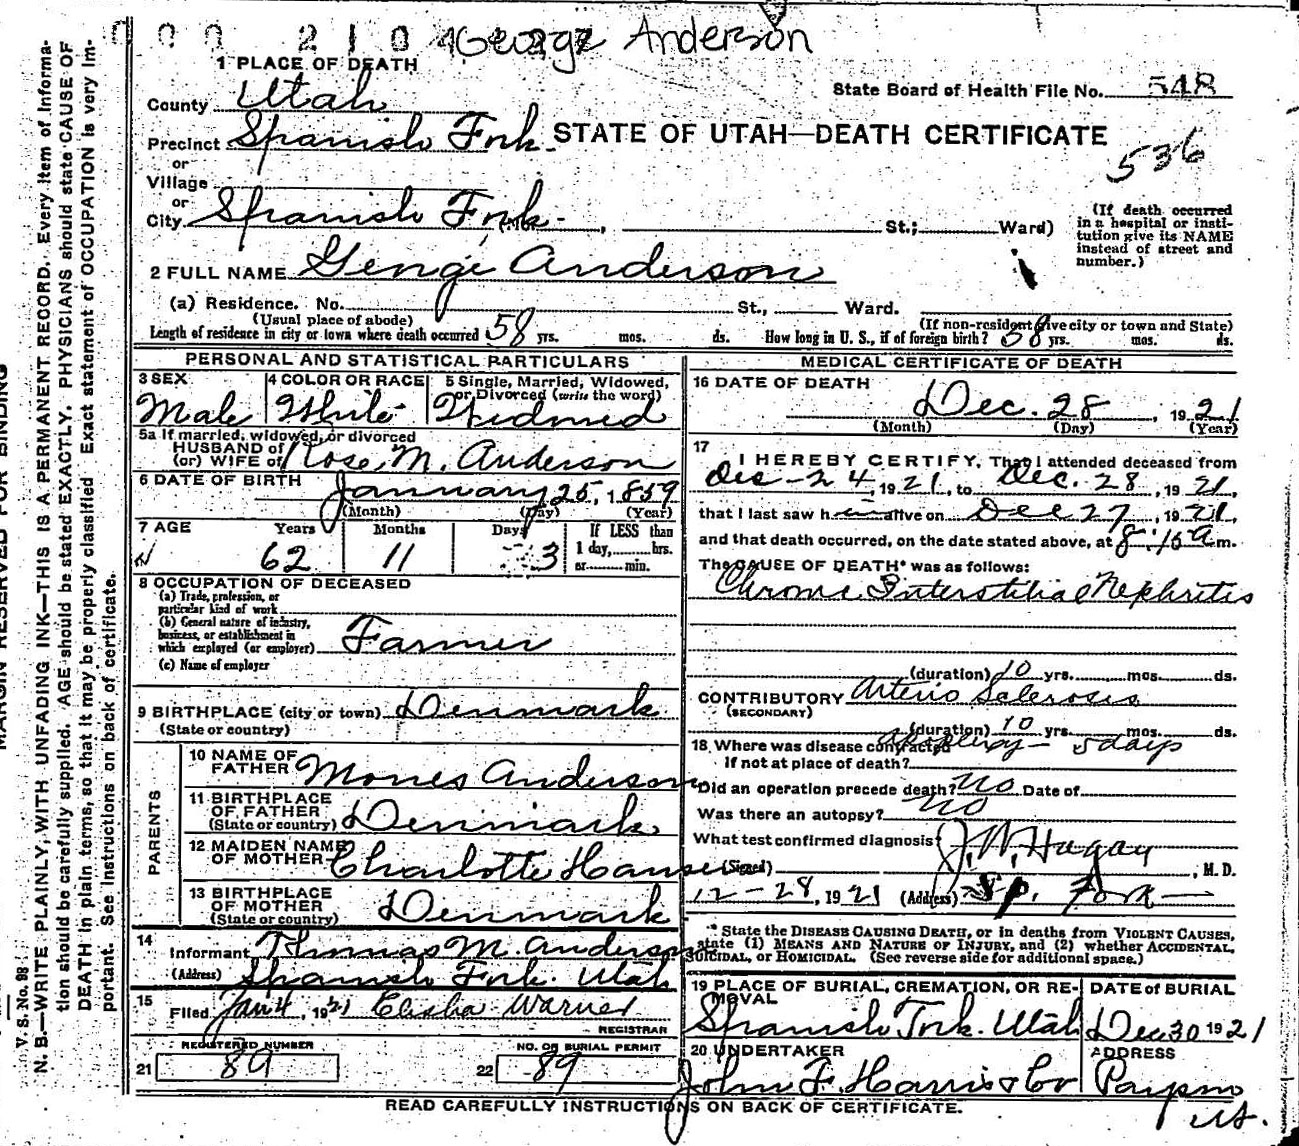 000 2104
George Anderson
1 PLACE OF DEATH
State Board of Health File No. 548
County Utah
Precinct Spanish Fork
STATE OF UTAH—DEATH CERTIFICATE
536
or
Village
or
City Spanish Fork St.; Ward)
(If death occurred in a hospital or institution give its NAME instead of street and number.)
2 FULL NAME George Anderson
(a) Residence. No. St., Ward.
(Usual place of abode) (If non-resident give city or town and State)
Length of residence in city or town where death occurred 58 yrs. mos. ds. How long in U. S., if of foreign birth? 58 yrs. mos. ds.
PERSONAL AND STATISTICAL PARTICULARS
3 SEX 4 COLOR OR RACE 5 Single, Married, Widowed, or Divorced (write the word)
Male White Widowed
5a If married, widowed, or divorced
HUSBAND of
(or) WIFE of Rose M. Anderson
6 DATE OF BIRTH January 25, 1859
(Month) (Day) (Year)
7 AGE Years Months Days If LESS than
62 11 3 1 day, hrs.
or min.
8 OCCUPATION OF DECEASED
(a) Trade, profession, or
particular kind of work
(b) General nature of industry,
business, or establishment in
which employed (or employer) Farmer
(c) Name of employer
9 BIRTHPLACE (city or town) Denmark
(State or country)
PARENTS
10 NAME OF
FATHER Mones Anderson
11 BIRTHPLACE
OF FATHER
(State or country) Denmark
12 MAIDEN NAME
OF MOTHER Charlotte Hansen
13 BIRTHPLACE
OF MOTHER
(State or country) Denmark
14
Informant Thomas M. Anderson
(Address) Spanish Fork. Utah
15
Filed Jan 4, 1921 Elisha Warner
REGISTRAR
REGISTERED NUMBER NO. OF BURIAL PERMIT
21 89 22 89
MEDICAL CERTIFICATE OF DEATH
16 DATE OF DEATH
Dec. 28, 1921
(Month) (Day) (Year)
17
I HEREBY CERTIFY, That I attended deceased from
Dec - 24, 1921, to Dec. 28, 1921,
that I last saw him alive on Dec 27, 1921,
and that death occurred, on the date stated above, at 8:15 a m.
The CAUSE OF DEATH* was as follows:
Chronic Interstitial Nephritis
(duration) 10 yrs. mos. ds.
CONTRIBUTORY Arterio Sclerosis
(SECONDARY)
(duration) 10 yrs. mos. ds.
Apoplexy - 5 days
18 Where was disease contracted
If not at place of death?
Did an operation precede death? No Date of
Was there an autopsy? No
What test confirmed diagnosis?
(Signed) J. W. Hagan, M. D.
12-28, 1921 (Address) Sp. Fork
* State the DISEASE CAUSING DEATH, or in deaths from VIOLENT CAUSES,
state (1) MEANS AND NATURE OF INJURY, and (2) whether ACCIDENTAL,
SUICIDAL, or HOMICIDAL. (See reverse side for additional space.)
19 PLACE OF BURIAL, CREMATION, OR REMOVAL DATE of BURIAL
Spanish Fork. Utah Dec 30 1921
20 UNDERTAKER ADDRESS
John F. Harris & Co Payson
Ut.
READ CAREFULLY INSTRUCTIONS ON BACK OF CERTIFICATE.
MARGIN RESERVED FOR BINDING
V. S. No. 88
N. B.—WRITE PLAINLY, WITH UNFADING INK—THIS IS A PERMANENT RECORD. Every item of informa-
tion should be carefully supplied. AGE should be stated EXACTLY. PHYSICIANS should state CAUSE OF
DEATH in plain terms, so that it may be properly classified. Exact statement of OCCUPATION is very im-
portant. See instructions on back of certificate.